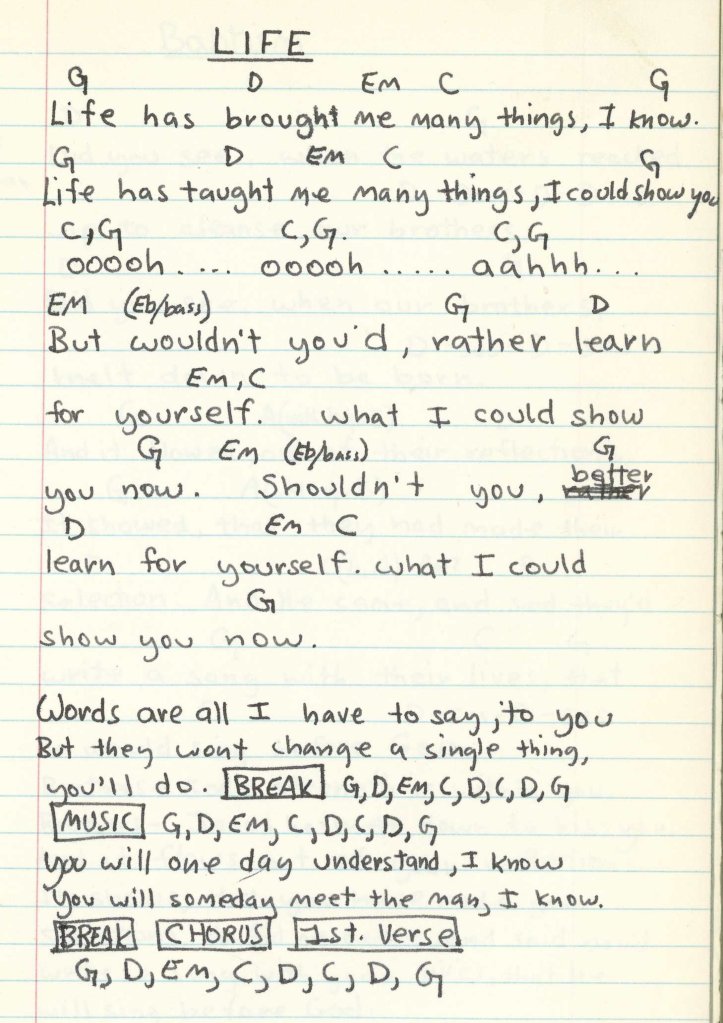 LIFE
G D Em C G
Life has brought me many things, I know.
G D Em C G
Life has taught me many things, I could show you
C, G C, G. C, G
ooooh . . . . ooooh . . . . . . aahhh. . .
EM (Eb/bass) G D
But wouldn't you'd, rather learn
Em, C
for yourself. what I could show
G Em (Eb/bass) G
better
you now. Shouldn't you, rather
D Em C
learn for yourself. what I could
G
show you now.
Words are all I have to say, to you
But they wont change a single thing,
you'll do. BREAK G, D, EM, C, D, C, D, G
MUSIC G, D, EM, C, D, C, D, G
you will one day understand, I know
You will someday meet the man, I know.
BREAK CHORUS 1st. Verse
G, D, EM, C, D, C, D, G